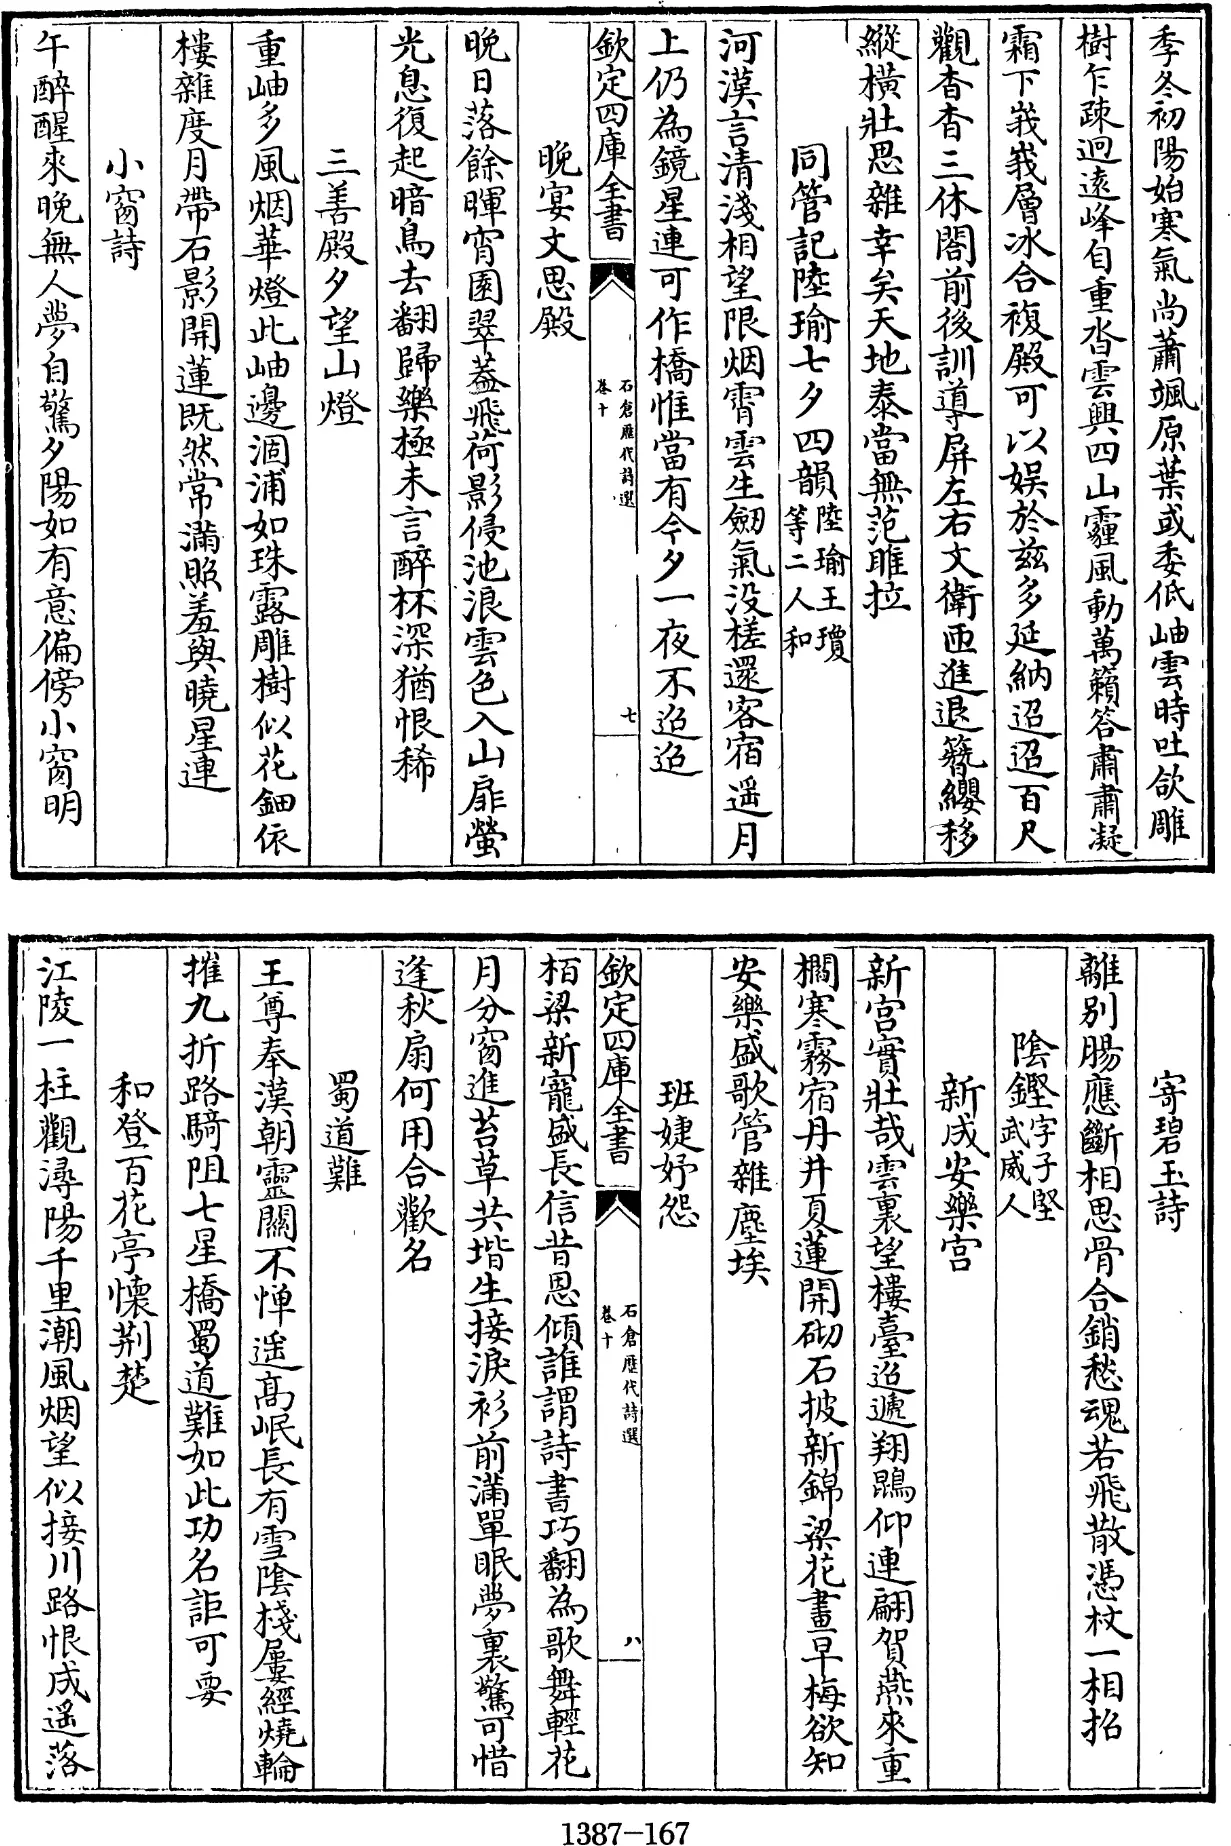 季冬初陽始寒氣尚蕭颯原葉或委低岫雲時吐欱雕
樹乍疎迥遠峰自重沓雲興四山霾風動萬籟答肅肅凝
霜下峩峩層冰合複殿可以娱於兹多延納迢迢百尺
觀杳杳三休閤前後訓導屏左右文衛匝進退簪纓移
縱横壯思雜幸矣天地泰當無范雎拉
同管記陸瑜七夕四韻陸瑜王瓊等二人和
河漢言清淺相望限烟霄雲生劒氣没槎還客宿遥月
上仍為鏡星連可作橋惟當有今夕一夜不迢迢
欽定四庫全書
石倉歷代詩選
卷十
七
晚宴文思殿
晚日落餘暉宵園翠蓋飛荷影侵池浪雲色入山扉螢
光息復起暗鳥去翻歸樂極未言醉杯深猶恨稀
三善殿夕望山燈
重岫多風烟華燈此岫邊涸浦如珠露雕樹似花鈿依
樓雜度月帶石影開蓮既然常滿照羞與曉星連
小窗詩
午醉醒來晚無人夢自驚夕陽如有意偏傍小窗明
寄碧玉詩
離别腸應斷相思骨合銷愁魂若飛散憑杖一相招
陰鏗字子堅武威人
新成安樂宫
新宫實壯哉雲裏望樓臺迢遞翔鵾仰連翩賀燕來重
櫩寒霧宿丹井夏蓮開砌石披新錦梁花畫早梅欲知
安樂盛歌管雜塵埃
班婕妤怨
栢梁新寵盛長信昔恩傾誰謂詩書巧翻為歌舞輕花
月分窗進苔草共堦生接淚衫前滿單眠夢裏驚可惜
逢秋扇何用合歡名
欽定四庫全書
石倉歷代詩選
卷十
八
蜀道難
王尊奉漢朝靈關不憚遥高岷長有雪陰棧屢經燒輪
摧九折路騎阻七星橋蜀道難如此功名詎可要
和登百花亭懷荆楚
江陵一柱觀潯陽千里潮風烟望似接川路恨成遥落
1387-167